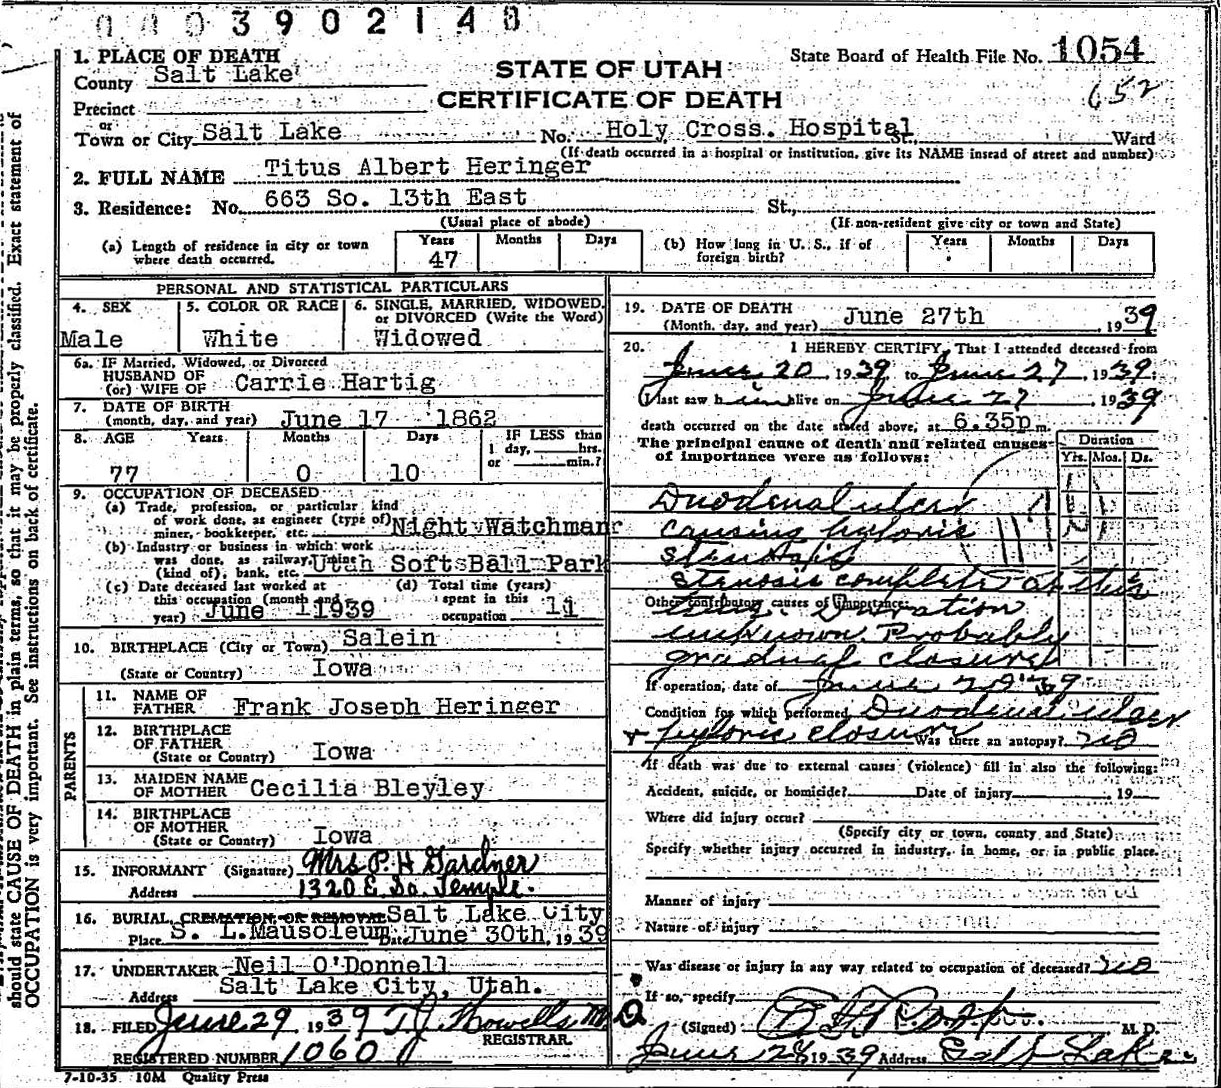 0003902148
1. PLACE OF DEATH
County Salt Lake
Precinct
or
Town or City Salt Lake No. Holy Cross. Hospital St., Ward
(If death occurred in a hospital or institution, give its NAME insead of street and number)
State Board of Health File No. 1054
652
STATE OF UTAH
CERTIFICATE OF DEATH
2. FULL NAME Titus Albert Heringer
3. Residence: No. 663 So. 13th East St.,
(Usual place of abode) (If non-resident give city or town and State)
(a) Length of residence in city or town where death occurred. Years 47 Months Days
(b) How long in U. S., if of foreign birth? Years Months Days
PERSONAL AND STATISTICAL PARTICULARS
4. SEX Male
5. COLOR OR RACE White
6. SINGLE, MARRIED, WIDOWED, or DIVORCED (Write the Word) Widowed
6a. IF Married, Widowed, or Divorced
HUSBAND OF
(or) WIFE OF Carrie Hartig
7. DATE OF BIRTH
(month, day, and year) June 17 1862
8. AGE Years 77 Months 0 Days 10 IF LESS than 1 day, hrs. or min.?
9. OCCUPATION OF DECEASED
(a) Trade, profession, or particular kind of work done, as engineer (type of) miner, bookkeeper, etc. Night Watchman
(b) Industry or business in which work was done, as railway, mine (kind of), bank, etc. Utah Soft Ball Park
(c) Date deceased last worked at this occupation (month and year) June 1 1939
(d) Total time (years) spent in this occupation 11
10. BIRTHPLACE (City or Town) Salein
(State or Country) Iowa
PARENTS
11. NAME OF FATHER Frank Joseph Heringer
12. BIRTHPLACE OF FATHER
(State or Country) Iowa
13. MAIDEN NAME OF MOTHER Cecilia Bleyley
14. BIRTHPLACE OF MOTHER
(State or Country) Iowa
15. INFORMANT (Signature) Mrs P. H Gardner
Address 1320 E. So. Temple.
16. BURIAL, CREMATION, OR REMOVAL Salt Lake City
Place S. L. Mausoleum Date June 30th, 1939
17. UNDERTAKER Neil O'Donnell
Address Salt Lake City, Utah.
18. FILED June 29 1939 T J Howells M.D.
REGISTRAR.
REGISTERED NUMBER 1060
7-10-35 10M Quality Press
19. DATE OF DEATH
(Month, day, and year) June 27th, 1939
20. I HEREBY CERTIFY, That I attended deceased from
June 20, 1939, to June 27, 1939.
I last saw him alive on June 27, 1939
death occurred on the date stated above, at 6.35p m.
The principal cause of death and related causes of importance were as follows:
Duration
Yrs. Mos. Ds.
Duodenal ulcer
causing pyloric
stenosis
stenosis complete at this
time. Duration
Other contributory causes of importance:
unknown. Probably
gradual closure
If operation, date of June 20 '39
Condition for which performed Duodenal ulcer
+ pyloric closure Was there an autopsy? no
If death was due to external causes (violence) fill in also the following:
Accident, suicide, or homicide? Date of injury , 19
Where did injury occur?
(Specify city or town, county and State)
Specify whether injury occurred in industry, in home, or in public place.
Manner of injury
Nature of injury
Was disease or injury in any way related to occupation of deceased? no
If so, specify
(Signed) M. D.
June 28 1939 Address Salt Lake
should state CAUSE OF DEATH in plain terms, so that it may be properly classified. Exact statement of
OCCUPATION is very important. See instructions on back of certificate.